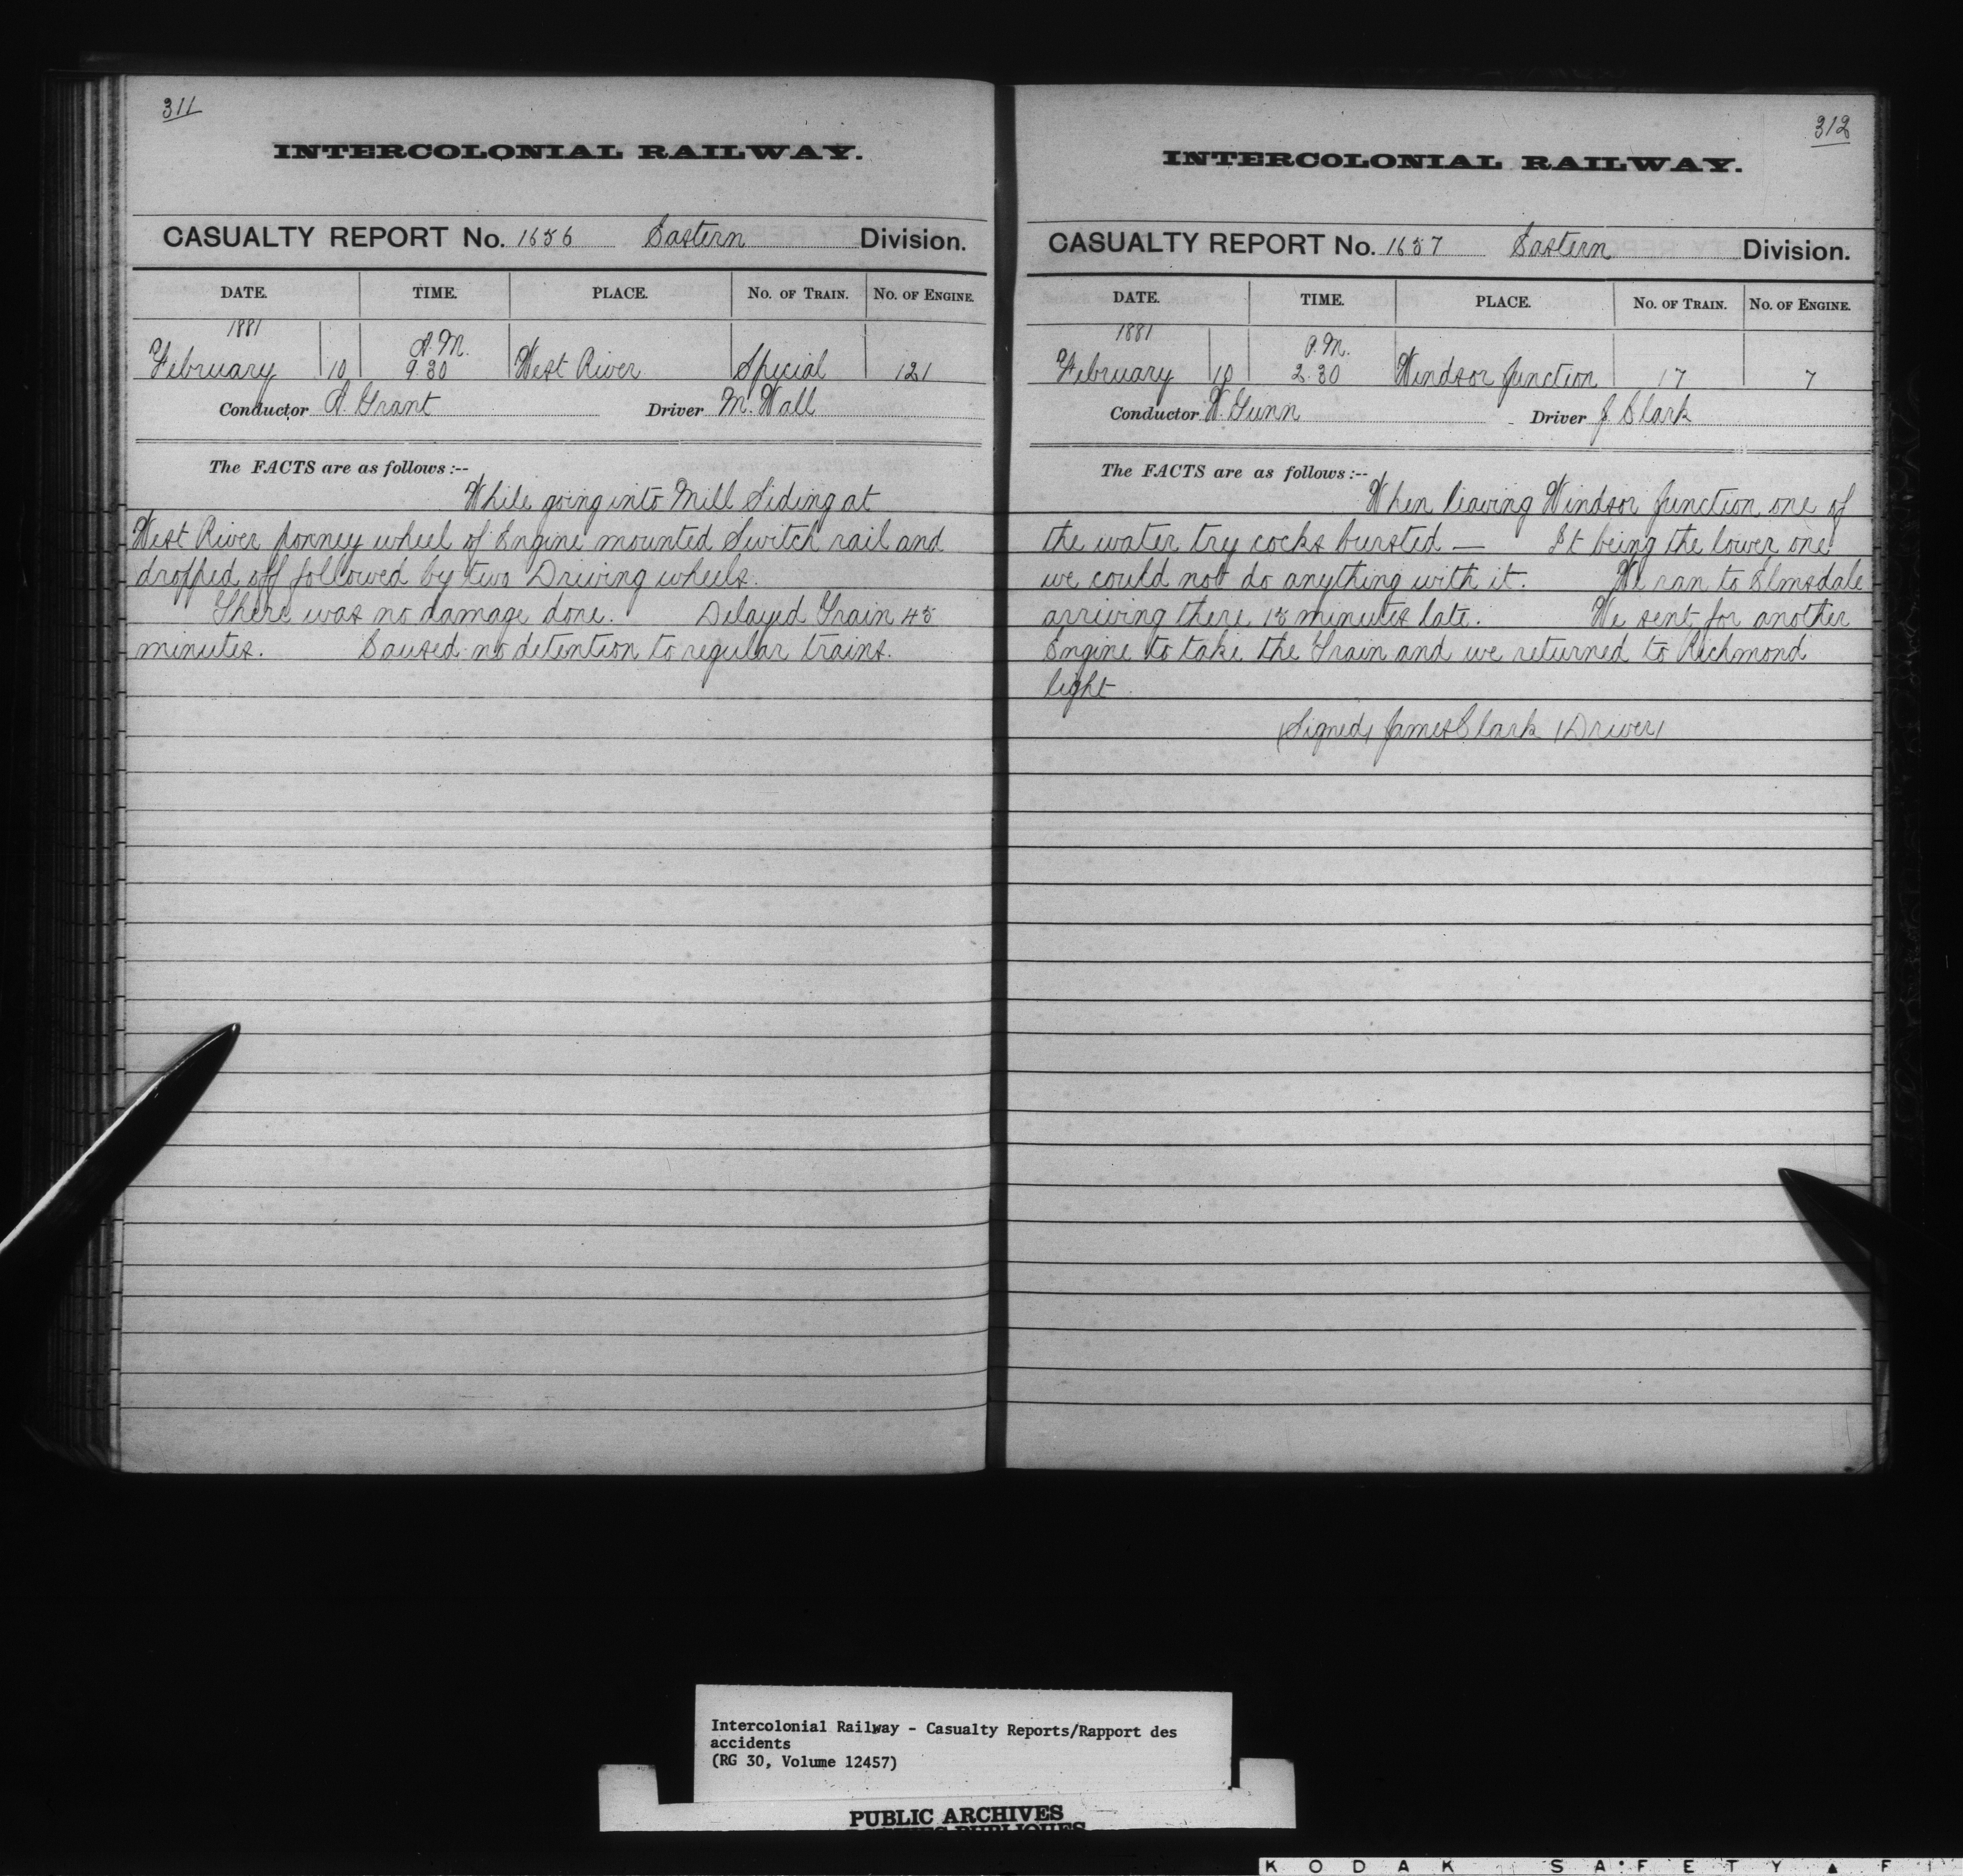 311
INTERCOLONIAL RAILWAY.
CASUALTY REPORT No. 1656 Eastern Division.
DATE. TIME. PLACE. No. of Train. No. of Engine.
1881 A.M.
February 10 9.30 West River Special 121
Conductor A. Grant Driver M. Wall
The FACTS are as follows:--
While going into Mill Siding at
West River ponney wheel of Engine mounted Switch rail and
dropped off followed by two Driving wheels.
There was no damage done. Delayed Train 45
minutes. Caused no detention to regular trains.
312
INTERCOLONIAL RAILWAY.
CASUALTY REPORT No. 1657 Eastern Division.
DATE. TIME. PLACE. No. of Train. No. of Engine.
1881 P.M.
February 10 2.30 Windsor Junction 17 7
Conductor W. Gunn Driver J Clark
The FACTS are as follows:--
When leaving Windsor Junction one of
the water try cocks bursted — It being the lower one
we could not do anything with it. We ran to Elmsdale
arriving there 15 minutes late. We sent for another
Engine to take the Train and we returned to Richmond
light
(Signed) James Clark (Driver)
Intercolonial Railway - Casualty Reports/Rapport des
accidents
(RG 30, Volume 12457)
PUBLIC ARCHIVES
KODAK SAFETY ▲ F